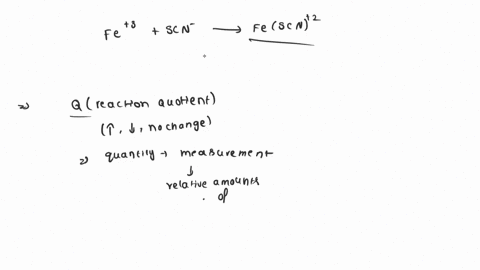 Fe⁺³ + SCN⁻ ⟶ Fe(SCN)⁺²
⇒ Q (reaction quotient)
(↑, ↓, no change)
⇒ quantity → measurement
↓
relative amounts
of